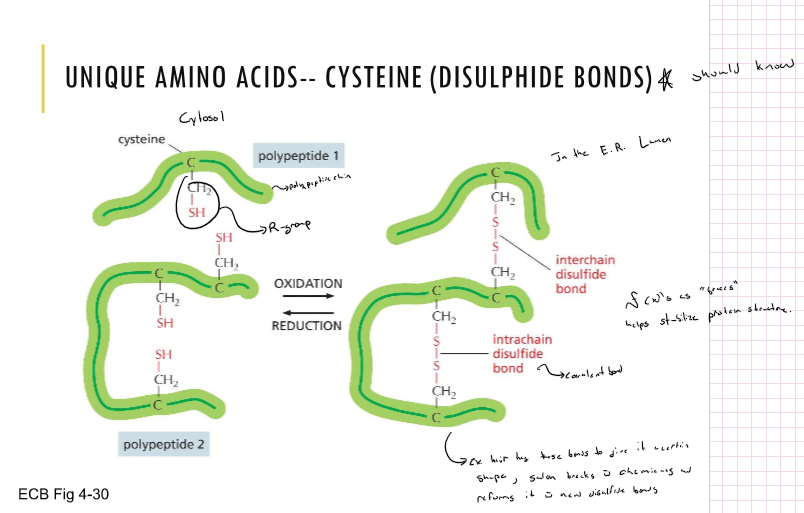 UNIQUE AMINO ACIDS-- CYSTEINE (DISULPHIDE BONDS) * should know
Cytosol
cysteine
polypeptide 1
In the E.R. Lumen
C
CH₂
SH
polypeptide chain
R-group
SH
CH₂
C
C
CH₂
SH
SH
CH₂
C
polypeptide 2
OXIDATION
REDUCTION
C
CH₂
S
S
CH₂
C
interchain
disulfide
bond
C
CH₂
S
S
CH₂
C
intrachain
disulfide
bond
covalent bond
f(x)'s as "braces"
helps stabilize protein structure.
Ex hair has these bonds to give it a certain
shape, salon breaks w chemicals
reforms it w new disulfide bonds
ECB Fig 4-30